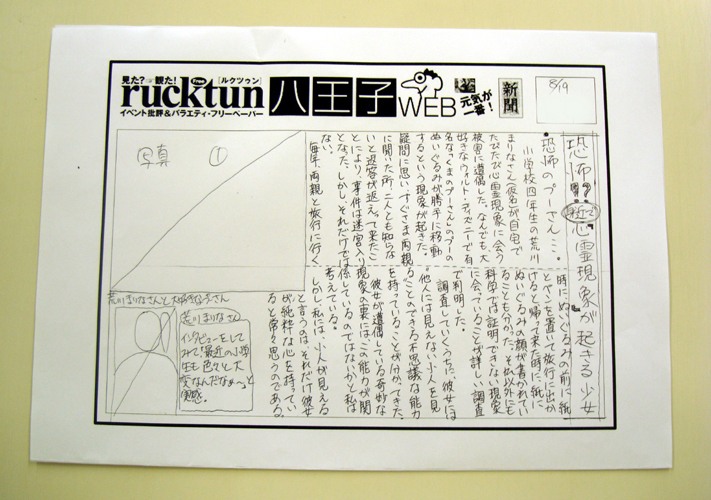 見た?→観た! Free [ルクツゥン]
rucktun
イベント批評&バラエティ・フリーペーパー
八王子
WEB
元気が
一番!
新聞
8/19
恐怖!!身近で心霊現象が起きる少女
・恐怖のプーさん・・・。
小学校四年生の荒川
まりなさん(仮名)が自宅で
たびたび心霊現象に会う
被害に遭遇した。なんでも、大
好きなウォルト・ディズニーで有
名な「くまのプーさん」のプーの
ぬいぐるみが勝手に移動
するという現象が起きた。
疑問に思い、すぐさま両親
に聞いた所、二人とも知らな
いと返答が返えって来たこ
とにより、事件は迷宮入り
となった。しかし、それだけでは
ない。
毎年、両親と旅行に行く
時に、ぬいぐるみの前に紙
とペンを置いて旅行に出か
けると帰って来た時に、紙に
ぬいぐるみの顔が書かれてい
ることも分かった。それ以外にも
科学では証明できない現象
に会っていることが詳しい調査
で判明した。
調査していくうちに、彼女には
"他人には見えない小人を見
ることのできる不思議な能力
を持っていることが分かってきた。
彼女が遭遇している奇妙な
現象の裏にはこの能力が関
係しているのではないかと私は
考えている。
しかし、私は、小人が見える
と言うのは、それだけ彼女
が純粋な心を持ってい
ると常々思うのである。
写真 ①
荒川まりなさんと大好きなプーさん
荒川まりなさん
インタビューをして
みて「最近の小学
生も色々と大
変なんだなぁ〜」と
実感。